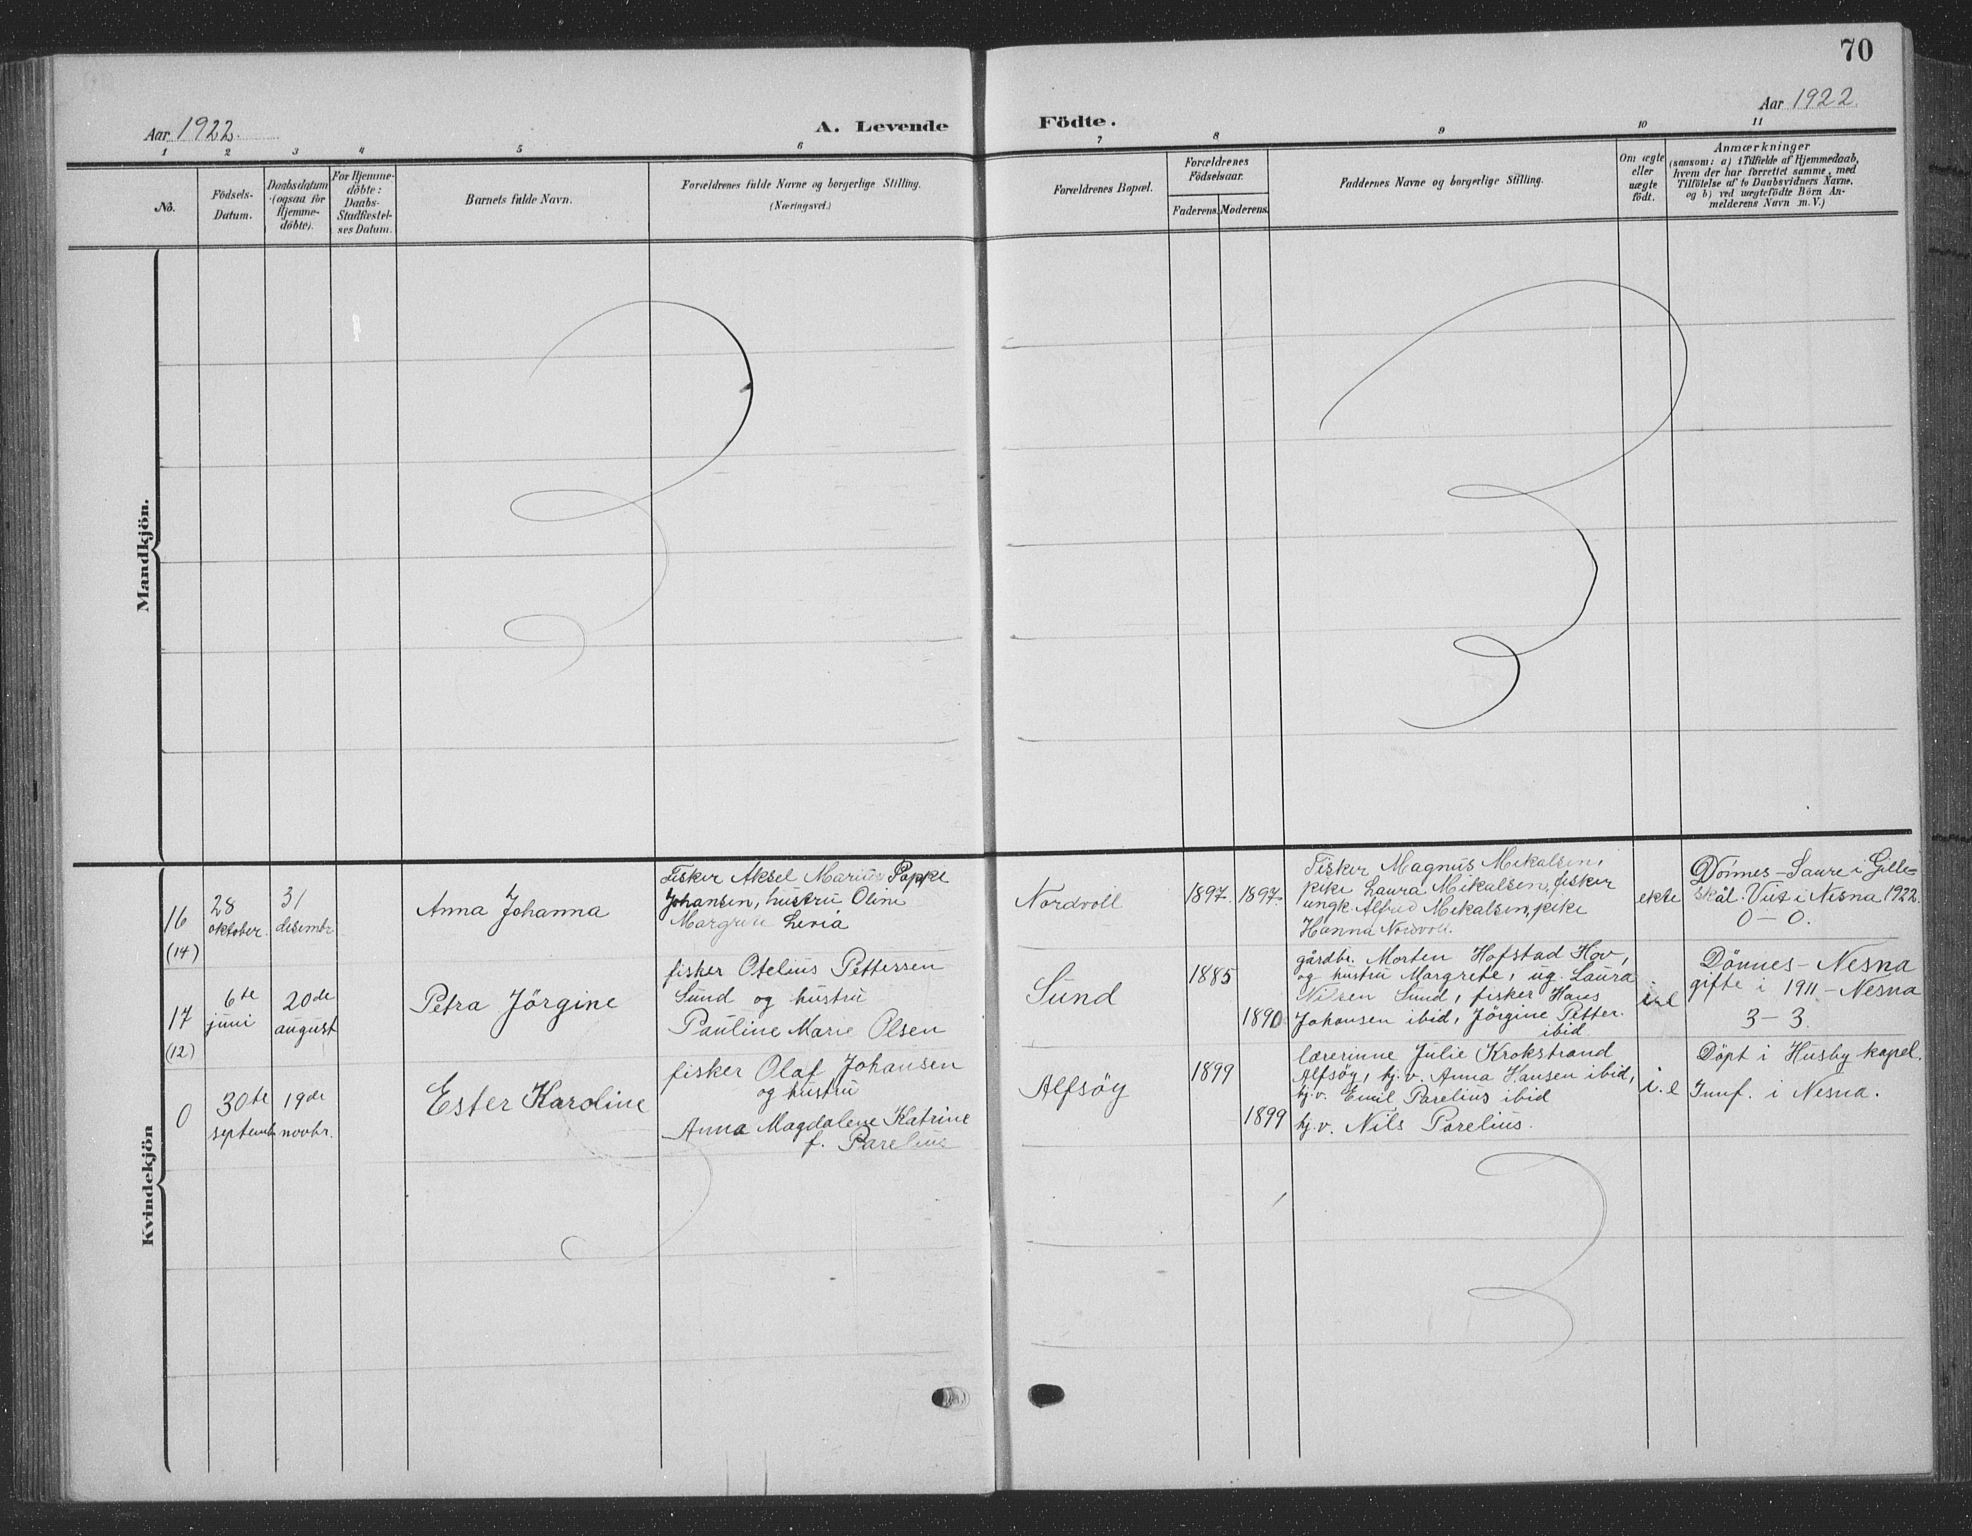 70
Aar 1922.
A. Levende
Födte.
Aar 1922.
1 2 3 4 5 6 7 8 9 10 11
No.
Födsels-
Datum.
Daabsdatum
(ogsaa for
Hjemme-
döbte).
For Hjemme-
döbte:
Daabs-
Stadfæstel-
ses Datum.
Barnets fulde Navn.
Forældrenes fulde Navne og borgerlige Stilling.
(Næringsvei.)
Forældrenes Bopæl.
Forældrenes
Födselsaar.
Faderens. Moderens.
Faddernes Navne og borgerlige Stilling.
Om ægte
eller
uægte
födt.
Anmærkninger
(saasom: a) i Tilfælde af Hjemmedaab,
hvem der har forrettet samme, med
Tilföielse af to Daabsvidners Navne,
og b) ved uægtefödte Börn An-
melderens Navn m. V.)
Mandkjön.
Kvindekjön
16
(14)
28
oktober.
31
desembr.
Anna Johanna
Fisker Aksel Marius Pappe
Johansen, hustru Oline
Margrete Levia
Nordvoll
1897. 1897.
Fisker Magnus Mikalsen,
pike Laura Mikalsen, fisker
ungk Alfred Mikalsen, pike
Hanna Nordvoll.
ekte
Dönnes - Saura i Gilde-
skål. Viet i Nesna 1922.
0 - 0.
17
(12)
6te
juni
20de
august
Petra Jörgine
fisker Otelius Pettersen
Sund og hustru
Pauline Marie Olsen
Sund
1885
1890
gårdbr. Morten Hofstad Hov,
og hustru Margrete, ug. Laura
Nilsen Sund, fisker Hans
Johansen ibid, Jörgine Petter.
ibid
i.e
Dönnes - Nesna
gifte i 1911 - Nesna
3 - 3.
0
30te
septembr.
19de
novbr.
Ester Karoline
fisker Olaf Johansen
og hustru
Anna Magdalene Katrine
f. Parelius
Alfsöy
1899
1899
lærerinne Julie Krokstrand
Alfsöy, kj.v. Anna Hansen ibid,
kj.v. Emil Parelius ibid
kj.v. Nils Parelius.
i.e
Döpt i Husby kapel.
Innf. i Nesna.